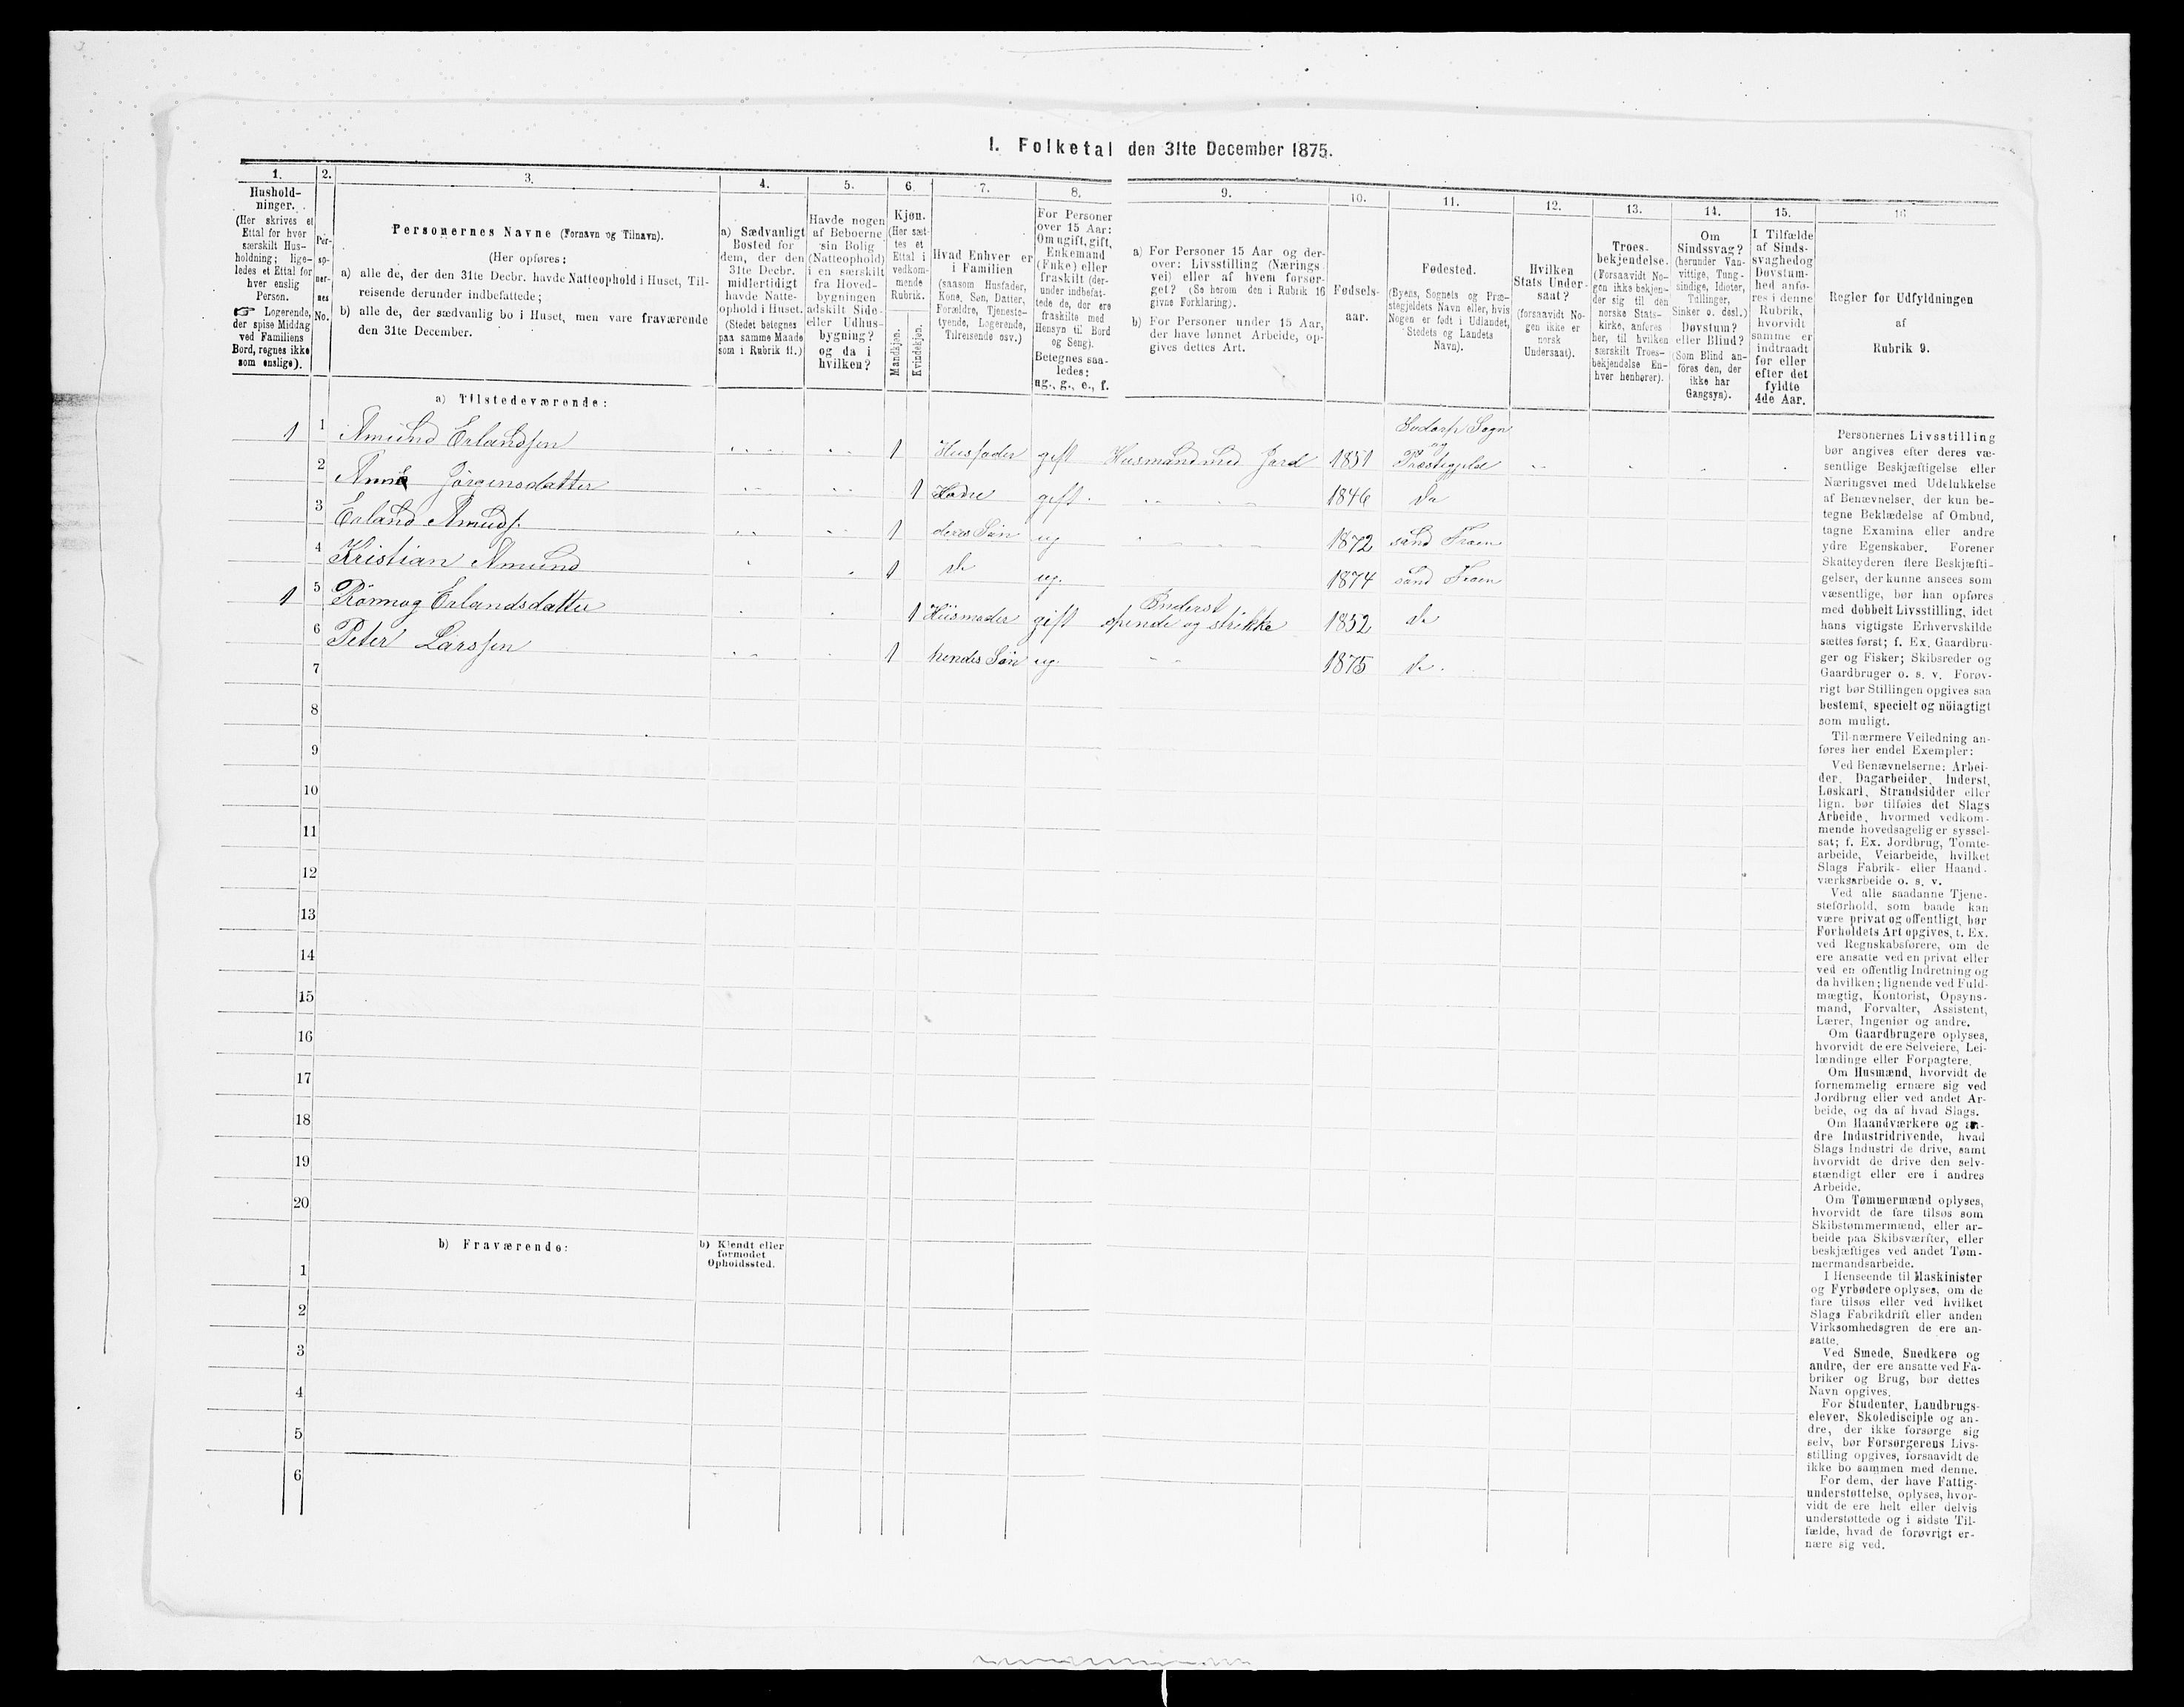 I. Folketal den 31te December 1875.
1.
Hushold-
ninger.
(Her skrives et
Ettal for hver
særskilt Hus-
holdning; lige-
ledes et Ettal for
hver enslig
Person.
☞ Logerende,
der spise Middag
ved Familiens
Bord, regnes ikke
som enslige).
2.
Per-
so-
ner-
nes
No.
3.
Personernes Navne (Fornavn og Tilnavn).
(Her opføres:
a) alle de, der den 31te Decbr. havde Natteophold i Huset, Til-
reisende derunder indbefattede;
b) alle de, der sædvanlig bo i Huset, men vare fraværende
den 31te December.
4.
a) Sædvanligt
Bosted for
dem, der den
31te Decbr.
midlertidigt
havde Natte-
ophold i Huset.
(Stedet betegnes
paa samme Maade
som i Rubrik 11.)
5.
Havde nogen
af Beboerne
sin Bolig
(Natteophold)
i en særskilt
fra Hoved-
bygningen
adskilt Side-
eller Udhus-
bygning?
og da i
hvilken?
6.
Kjøn.
(Her sæt-
tes et
Ettal i
vedkom-
mende
Rubrik.
Mandkjøn.
Kvindekjøn.
7.
Hvad Enhver er
i Familien
(saasom Husfader,
Kone, Søn, Datter,
Forældre, Tjeneste-
tyende, Logerende,
Tilreisende osv.)
8.
For Personer
over 15 Aar:
Om ugift, gift,
Enkemand
(Enke) eller
fraskilt (der-
under indbefat-
tede de, der ere
fraskilte med
Hensyn til Bord
og Seng).
Betegnes saa-
ledes:
ug., g., e., f.
9.
a) For Personer 15 Aar og der-
over: Livsstilling (Nærings-
vei) eller af hvem forsør-
get? (Se herom den i Rubrik 16
givne Forklaring).
b) For Personer under 15 Aar,
der have lønnet Arbeide, op-
gives dettes Art.
10.
Fødsels-
aar.
11.
Fødested.
(Byens, Sognets og Præ-
stegjeldets Navn eller, hvis
Nogen er født i Udlandet,
Stedets og Landets
Navn).
12.
Hvilken
Stats Under-
saat?
(forsaavidt No-
gen ikke er
norsk
Undersaat).
13.
Troes-
bekjendelse.
(Forsaavidt No-
gen ikke bekjen-
der sig til den
norske Stats-
kirke, anføres
her, til hvilken
særskilt Troes-
bekjendelse En-
hver henhører).
14.
Om
Sindssvag?
(herunder Van-
vittige, Tung-
sindige, Idioter,
Tullinger,
Sinker o. desl.)
Døvstum?
eller Blind?
(Som Blind an-
föres den, der
ikke har
Gangsyn).
15.
I Tilfælde
af Sinds-
svaghed og
Døvstum-
hed anfø-
res i denne
Rubrik,
hvorvidt
samme er
indtraadt
før eller
efter det
fyldte
4de Aar.
16
Regler for Udfyldningen
af
Rubrik 9.
a) Tilstedeværende:
1 1 Amund Erlandsen 1 Husfader gift Husmand med Jord 1851 Sødorp Sogn og Præstegjeld
2 Anne Jörgensdatter 1 Kone gift 1846 do
3 Erland Amuds. 1 deres Søn ug 1872 Froen
4 Kristian Amund 1 do ug. 1874 Froen
1 5 Rönnog Erlandsdatter 1 Huusmoder gift Inderst spinde og strikke 1852 do
6 Peter Larssen 1 hendes Søn ug. 1875 do.
7
8
9
10
11
12
13
14
15
16
17
18
19
20
b) Fraværende:
b) Kjendt eller
formodet
Opholdssted.
1
2
3
4
5
6
Personernes Livsstilling
bør angives efter deres væ-
sentlige Beskjæftigelse eller
Næringsvei med Udelukkelse
af Benævnelser, der kun be-
tegne Beklædelse af Ombud,
tagne Examina eller andre
ydre Egenskaber. Forener
Skatteyderen flere Beskjæfti-
gelser, der kunne ansees som
væsentlige, bør han opføres
med dobbelt Livsstilling, idet
hans vigtigste Erhvervskilde
sættes først; f. Ex. Gaardbru-
ger og Fisker; Skibsreder og
Gaardbruger o. s. v. Forøv-
rigt bør Stillingen opgives saa
bestemt, specielt og nöiagtigt
som muligt.
Til nærmere Veiledning an-
føres her endel Exempler:
Ved Benævnelserne: Arbei-
der, Dagarbeider, Inderst,
Løskarl, Strandsidder eller
lign. bør tilføies det Slags
Arbeide, hvormed vedkom-
mende hovedsagelig er syssel-
sat; f. Ex. Jordbrug, Tomte-
arbeide, Veiarbeide, hvilket
Slags Fabrik- eller Haand-
værksarbeide o. s. v.
Ved alle saadanne Tjene-
steforhold, som baade kan
være privat og offentligt, bør
Forholdets Art opgives, t. Ex.
ved Regnskabsførere, om de
ere ansatte ved en privat eller
ved en offentlig Indretning og
da hvilken; lignende ved Fuld-
mægtig, Kontorist, Opsyns-
mand, Forvalter, Assistent,
Lærer, Ingeniør og andre.
Om Gaardbrugere oplyses,
hvorvidt de ere Selveiere, Lei-
lændinge eller Forpagtere.
Om Husmænd, hvorvidt de
fornemmelig ernære sig ved
Jordbrug eller ved andet Ar-
beide, og da af hvad Slags.
Om Haandværkere og an-
dre Industridrivende, hvad
Slags Industri de drive, samt
hvorvidt de drive den selv-
stændigt eller ere i andres
Arbeide.
Om Tømmermænd oplyses,
hvorvidt de fare tilsøs som
Skibstømmermænd, eller ar-
beide paa Skibsværfter, eller
beskjæftiges ved andet Tøm-
mermandsarbeide.
I Henseende til Maskinister
og Fyrbødere oplyses, om de
fare tilsøs eller ved hvilket
Slags Fabrikdrift eller anden
Virksomhedsgren de ere an-
satte.
Ved Smede, Snedkere og
andre, der ere ansatte ved Fa-
briker og Brug, bør dettes
Navn opgives.
For Studenter, Landbrugs-
elever, Skoledisciple og an-
dre, der ikke forsørge sig
selv, bør Forsørgerens Livs-
stilling opgives, forsaavidt de
ikke bo sammen med denne.
For dem, der have Fattig-
understøttelse, oplyses, hvor-
vidt de ere helt eller delvis
understøttede og i sidste Til-
fælde, hvad de forøvrigt er-
nære sig ved.